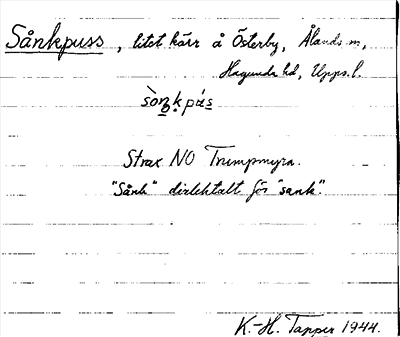 Sånkpuss, litet kärr å Österby, Ålands sn,
Hagunda hd, Upps. l.
sòŋkpás
Strax NO Trumpmyra.
"Sånk" dialektalt för "sank".
K.-H. Tapper 1944.